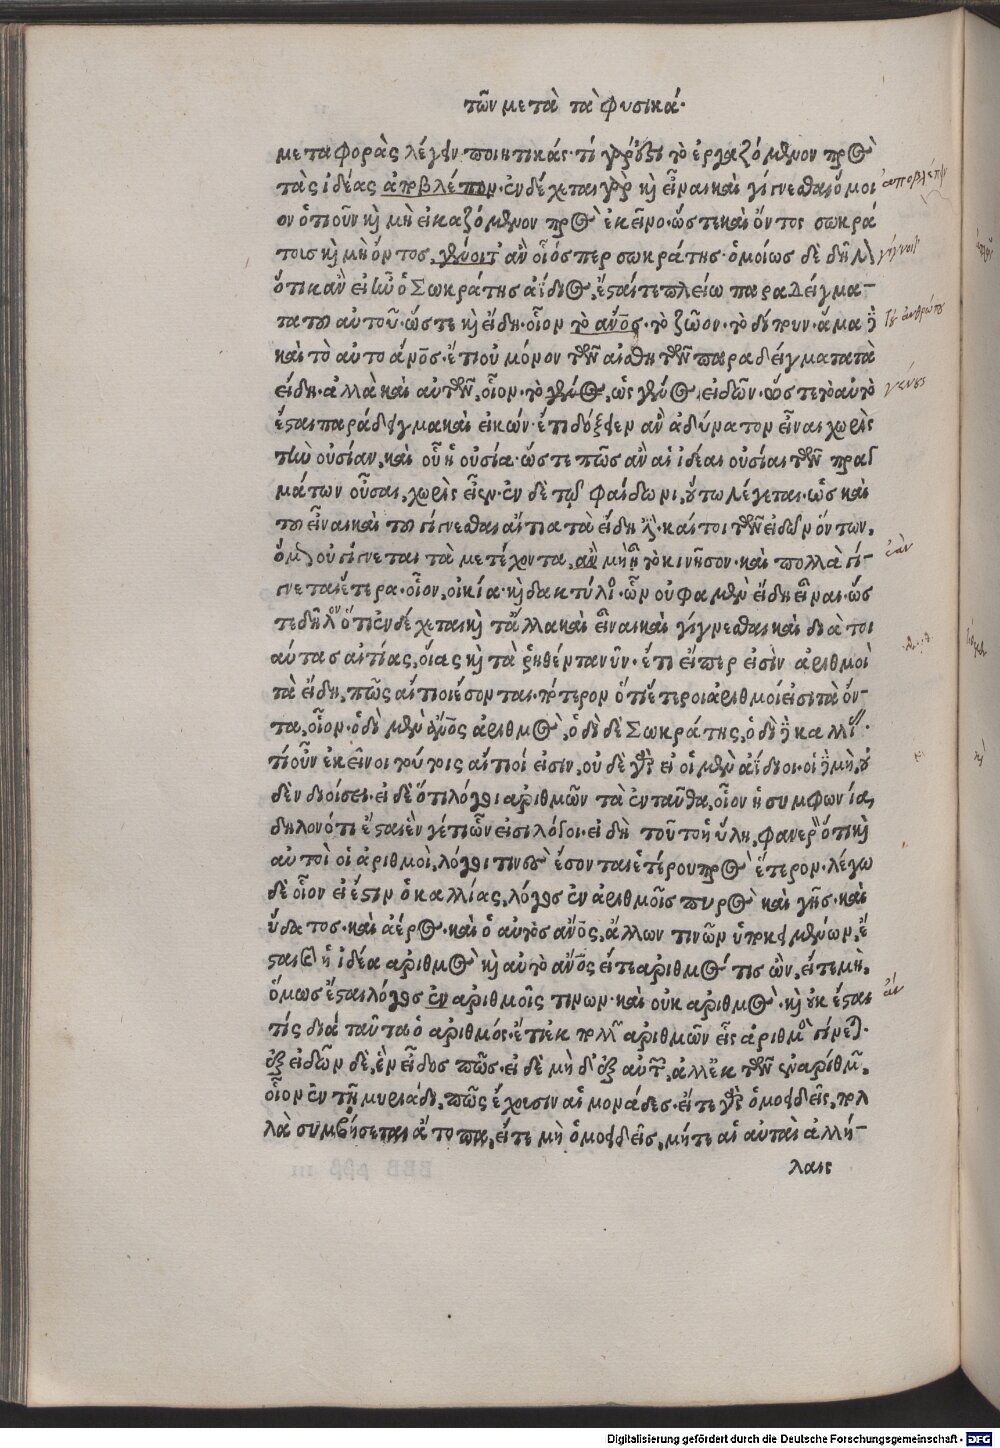 τῶν μετὰ τὰ φυσικά·
μεταφορὰς λέγειν ποιητικάς· τί γάρ ἐστι τὸ ἐργαζόμενον πρὸς
τὰς ἰδέας ἀποβλέπον· ἐνδέχεται γὰρ καὶ εἶναι καὶ γίγνεσθαι ὅμοι
ον ὁτιοῦν καὶ μὴ εἰκαζόμενον πρὸς ἐκεῖνο· ὥστε καὶ ὄντος σωκρά
τοις καὶ μὴ ὄντος, γένοιτ' ἂν οἷός περ σωκράτης· ὁμοίως δὲ δῆλον
ὅτι κἂν εἰ ἦν ὁ Σωκράτης ἀΐδιος, ἔσται τε πλείω παραδείγμα-
τα τοῦ αὐτοῦ· ὥστε καὶ εἴδη· οἷον τὸ ἄνος· τὸ ζῶον· τὸ δίπουν· ἅμα δὲ
καὶ τὸ αὐτοάνος· ἔτι οὐ μόνον τῶν αἰσθητῶν παραδείγματα τὰ
εἴδη· ἀλλὰ καὶ αὐτῶν, οἷον· τὸ γένος, ὡς γένος εἰδῶν· ὥστε τὸ αὐτὸ
ἔσται παράδειγμα καὶ εἰκών· ἔτι δόξειεν ἂν ἀδύνατον εἶναι χωρὶς
τὴν οὐσίαν, καὶ οὗ ἡ οὐσία· ὥστε πῶς ἂν αἱ ἰδέαι οὐσίαι τῶν πραγ
μάτων οὖσαι, χωρὶς εἶεν· ἐν δὲ τῷ φαίδωνι, οὕτω λέγεται· ὡς καὶ
τοῦ εἶναι καὶ τοῦ γίγνεσθαι αἴτια τὰ εἴδη ἐστί· καίτοι τῶν εἰδῶν ὄντων,
ὅμως οὐ γίγνεται τὰ μετέχοντα, ἂν μὴ ᾖ τὸ κινῆσον· καὶ πολλὰ γί-
γνεται ἕτερα· οἷον, οἰκία· καὶ δακτύλιος· ὧν οὔ φαμεν εἴδη εἶναι· ὥς
τε δῆλον ὅτι ἐνδέχεται καὶ τἆλλα καὶ εἶναι καὶ γίγνεσθαι καὶ διὰ τοι
αύτας αἰτίας, οἵας καὶ τὰ ῥηθέντα νῦν· ἔτι εἴπερ εἰσὶν ἀριθμοὶ
τὰ εἴδη, πῶς αἴτιοι ἔσονται· πότερον ὅτι ἕτεροι ἀριθμοί εἰσι τὰ ὄν-
τα, οἷον· ὁδὶ μὲν ἄνος ἀριθμὸς, ὁδὶ δὲ Σωκράτης, ὁδὶ δὲ καλλίας·
τί οὖν ἐκεῖνοι τούτοις αἴτιοί εἰσιν, οὐδὲ γὰρ εἰ οἱ μὲν ἀΐδιοι· οἱ δὲ μὴ, οὐ
δὲν διοίσει· εἰ δὲ ὅτι λόγοι ἀριθμῶν τὰ ἐνταῦθα, οἷον ἡ συμφωνία,
δηλονότι ἔσται ἕν γέ τι ὧν εἰσι λόγοι· εἰ δὴ τοῦτο ἡ ὕλη, φανερὸν ὅτι καὶ
αὐτοὶ οἱ ἀριθμοὶ, λόγοι τινὸς ἔσονται ἑτέρου πρὸς ἕτερον· λέγω
δὲ οἷον εἰ ἔστιν ὁ καλλίας, λόγος ἐν ἀριθμοῖς πυρὸς καὶ γῆς· καὶ
ὕδατος· καὶ ἀέρος· καὶ ὁ αὐτὸς ἄνος, ἄλλων τινῶν ὑποκειμένων, ἔ
σται καὶ ἡ ἰδέα ἀριθμὸς καὶ αὐτὸ ἄνος εἴτε ἀριθμός τις ὢν, εἴτε μὴ,
ὅμως ἔσται λόγος ἐν ἀριθμοῖς τινων· καὶ οὐκ ἀριθμὸς· καὶ οὐκ ἔσται
τίς διὰ ταῦτα ὁ ἀριθμός· ἔτι ἐκ πολλῶν ἀριθμῶν εἷς ἀριθμὸς γίνεται·
ἐξ εἰδῶν δὲ, ἓν εἶδος πῶς· εἰ δὲ μὴ δ' ἐξ αὐτῶν, ἀλλ' ἐκ τῶν ἐναρίθμων,
οἷον ἐν τῇ μυριάδι, πῶς ἔχουσιν αἱ μονάδες· εἴτε γὰρ ὁμοειδεῖς, πολ
λὰ συμβήσεται ἄτοπα, εἴτε μὴ ὁμοειδεῖς, μήτε αἱ αὐταὶ ἀλλή-
λαις
ἀποβλέπειν
τοῦ ἀνθρώπου
γένος
ἐὰν
ἀν
Digitalisierung gefördert durch die Deutsche Forschungsgemeinschaft - DFG